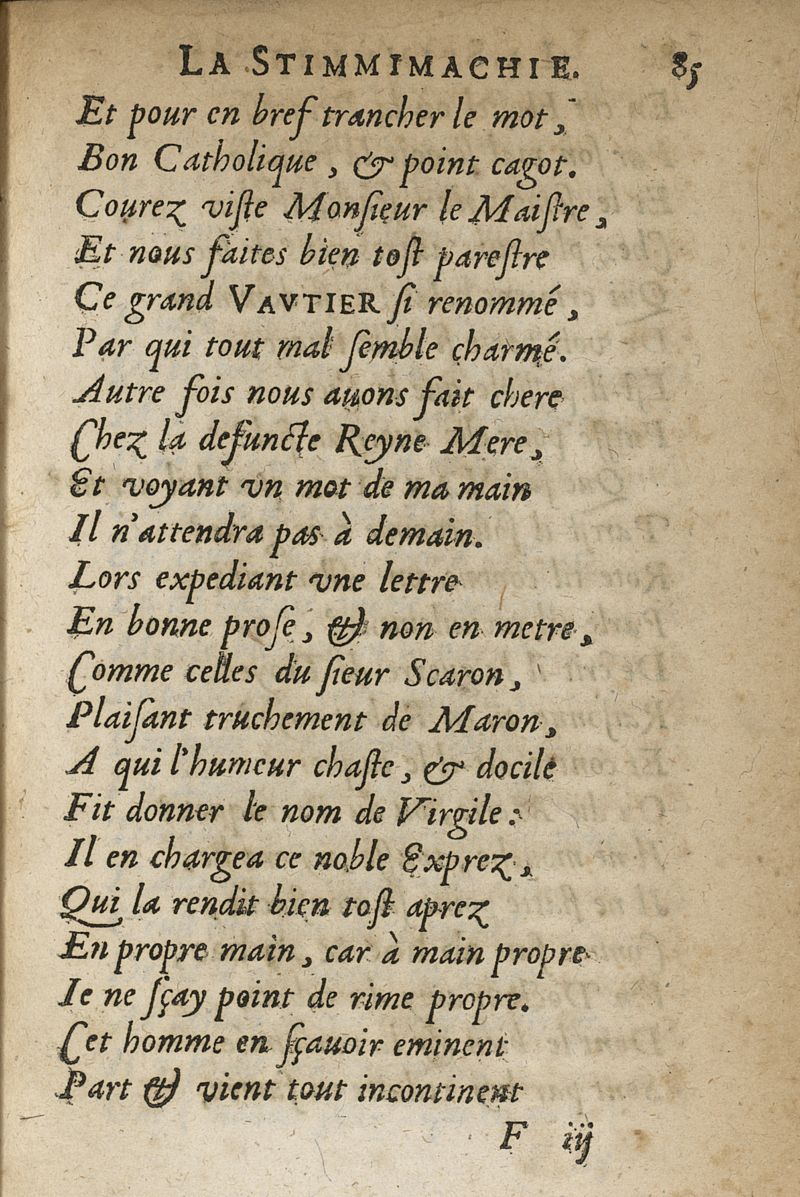 LA STIMMIMACHIE. 85
Et pour en bref trancher le mot,
Bon Catholique, & point cagot.
Courez viſte Monſieur le Maiſtre,
Et nous faites bien toſt pareſtre
Ce grand VAVTIER ſi renommé,
Par qui tout mal ſemble charmé.
Autre fois nous auons fait chere
Chez la defuncte Reyne Mere,
Et voyant vn mot de ma main
Il n'attendra pas à demain.
Lors expediant vne lettre
En bonne proſe, & non en metre,
Comme celles du ſieur Scaron,
Plaiſant truchement de Maron,
A qui l'humeur chaſte, & docile
Fit donner le nom de Virgile:
Il en chargea ce noble Exprez,
Qui la rendit bien toſt aprez
En propre main, car à main propre
Ie ne ſçay point de rime propre.
Cet homme en ſçauoir eminent
Part & vient tout incontinent
F iij